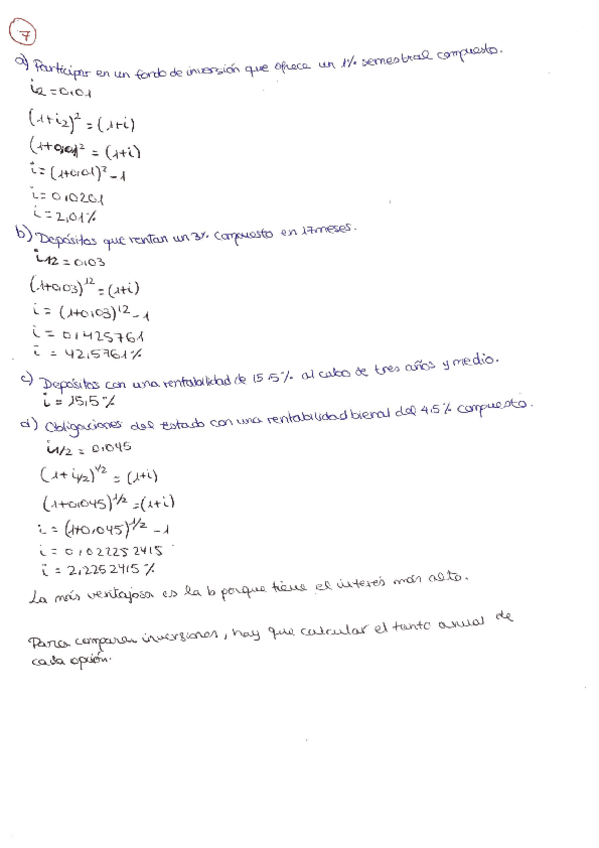 7
a) Participar en un fondo de inversión que ofrece un 1% semestral compuesto.
i2 = 0,01
(1+i2)² = (1+i)
(1+0,01)² = (1+i)
i = (1+0,01)² - 1
i = 0,0201
i = 2,01%
b) Depósitos que rentan un 3% compuesto en 17 meses.
i12 = 0,03
(1+0,03)^12 = (1+i)
i = (1+0,03)^12 - 1
i = 0,425761
i = 42,5761%
c) Depósitos con una rentabilidad de 15,5% al cabo de tres años y medio.
i = 15,5%
d) Obligaciones del Estado con una rentabilidad bienal del 4,5% compuesto.
i1/2 = 0,045
(1+i1/2)^1/2 = (1+i)
(1+0,045)^1/2 = (1+i)
i = (1+0,045)^1/2 - 1
i = 0,022252415
i = 2,2252415%
La más ventajosa es la b porque tiene el interés más alto.
Para comparar inversiones, hay que calcular el tanto anual de
cada opción.